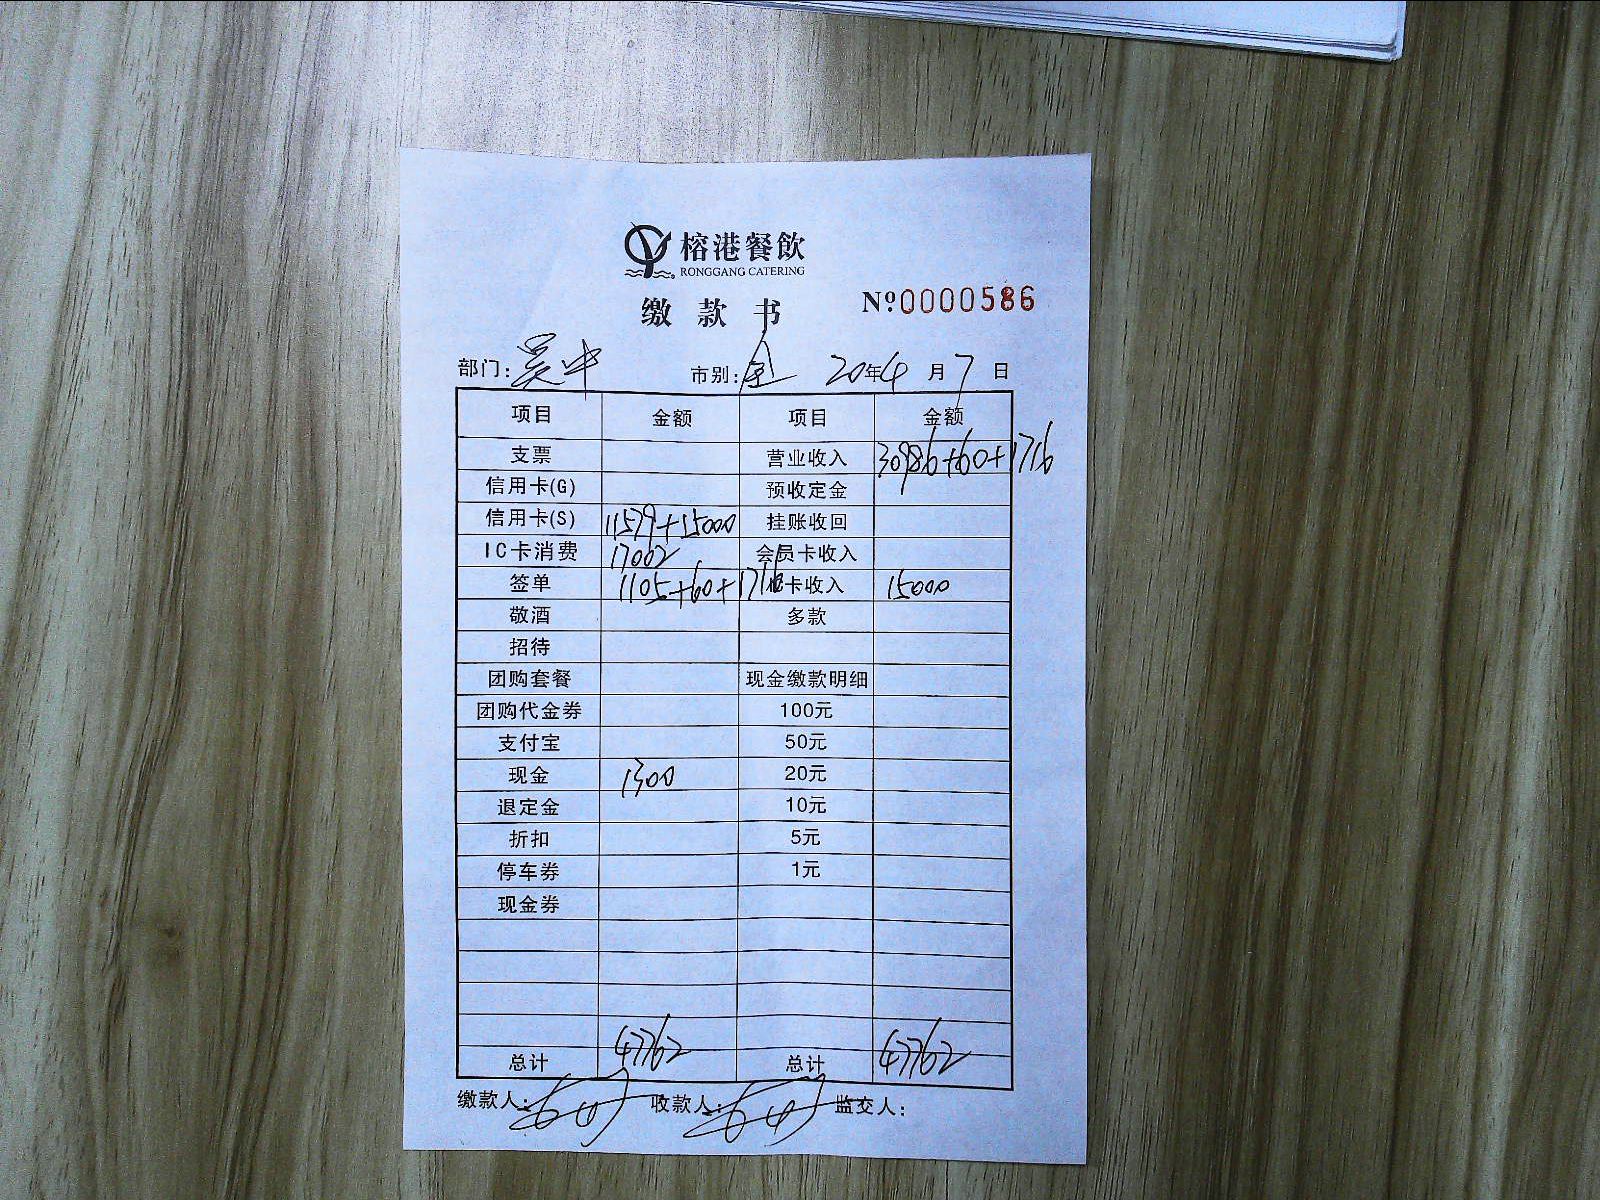 榕港餐飲
RONGGANG CATERING
缴款书 Nº0000586
部门: 吴中 市别: 全 20年4月7日
项目 金额 项目 金额
支票 营业收入 30986+60+1716
信用卡(G) 预收定金
信用卡(S) 11579+15000 挂账收回
IC卡消费 17002 会员卡收入
签单 1105+60+1716 卡收入 15000
敬酒 多款
招待
团购套餐 现金缴款明细
团购代金券 100元
支付宝 50元
现金 1300 20元
退定金 10元
折扣 5元
停车券 1元
现金券
总计 47762 总计 47762
缴款人: 收款人: 监交人: